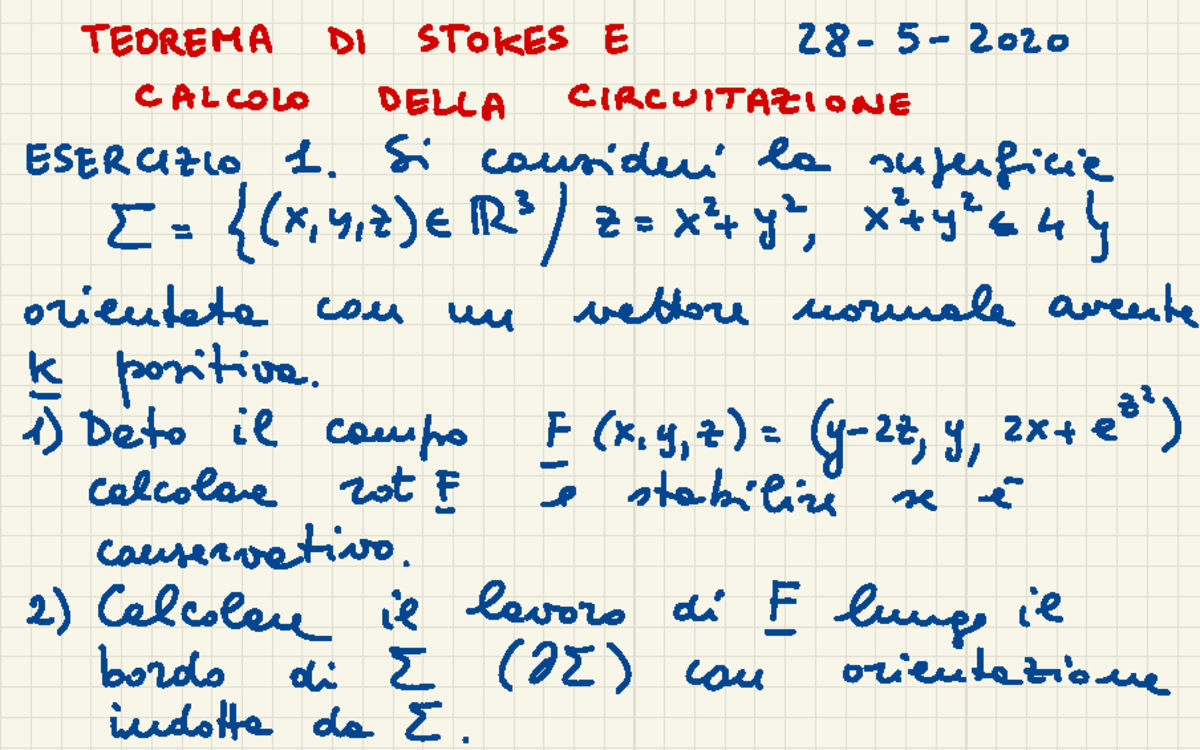 TEOREMA DI STOKES E 28-5-2020
CALCOLO DELLA CIRCUITAZIONE
ESERCIZIO 1. Si consideri la superficie
Σ = {(x,y,z) ∈ ℝ³ / z = x²+y², x²+y² ≤ 4}
orientata con un vettore normale avente
k positiva.
1) Dato il campo F (x,y,z) = (y-2z, y, 2x+e^{z²})
calcolare rot F e stabilire se è
conservativo.
2) Calcolare il lavoro di F lungo il
bordo di Σ (∂Σ) con orientazione
indotta da Σ.